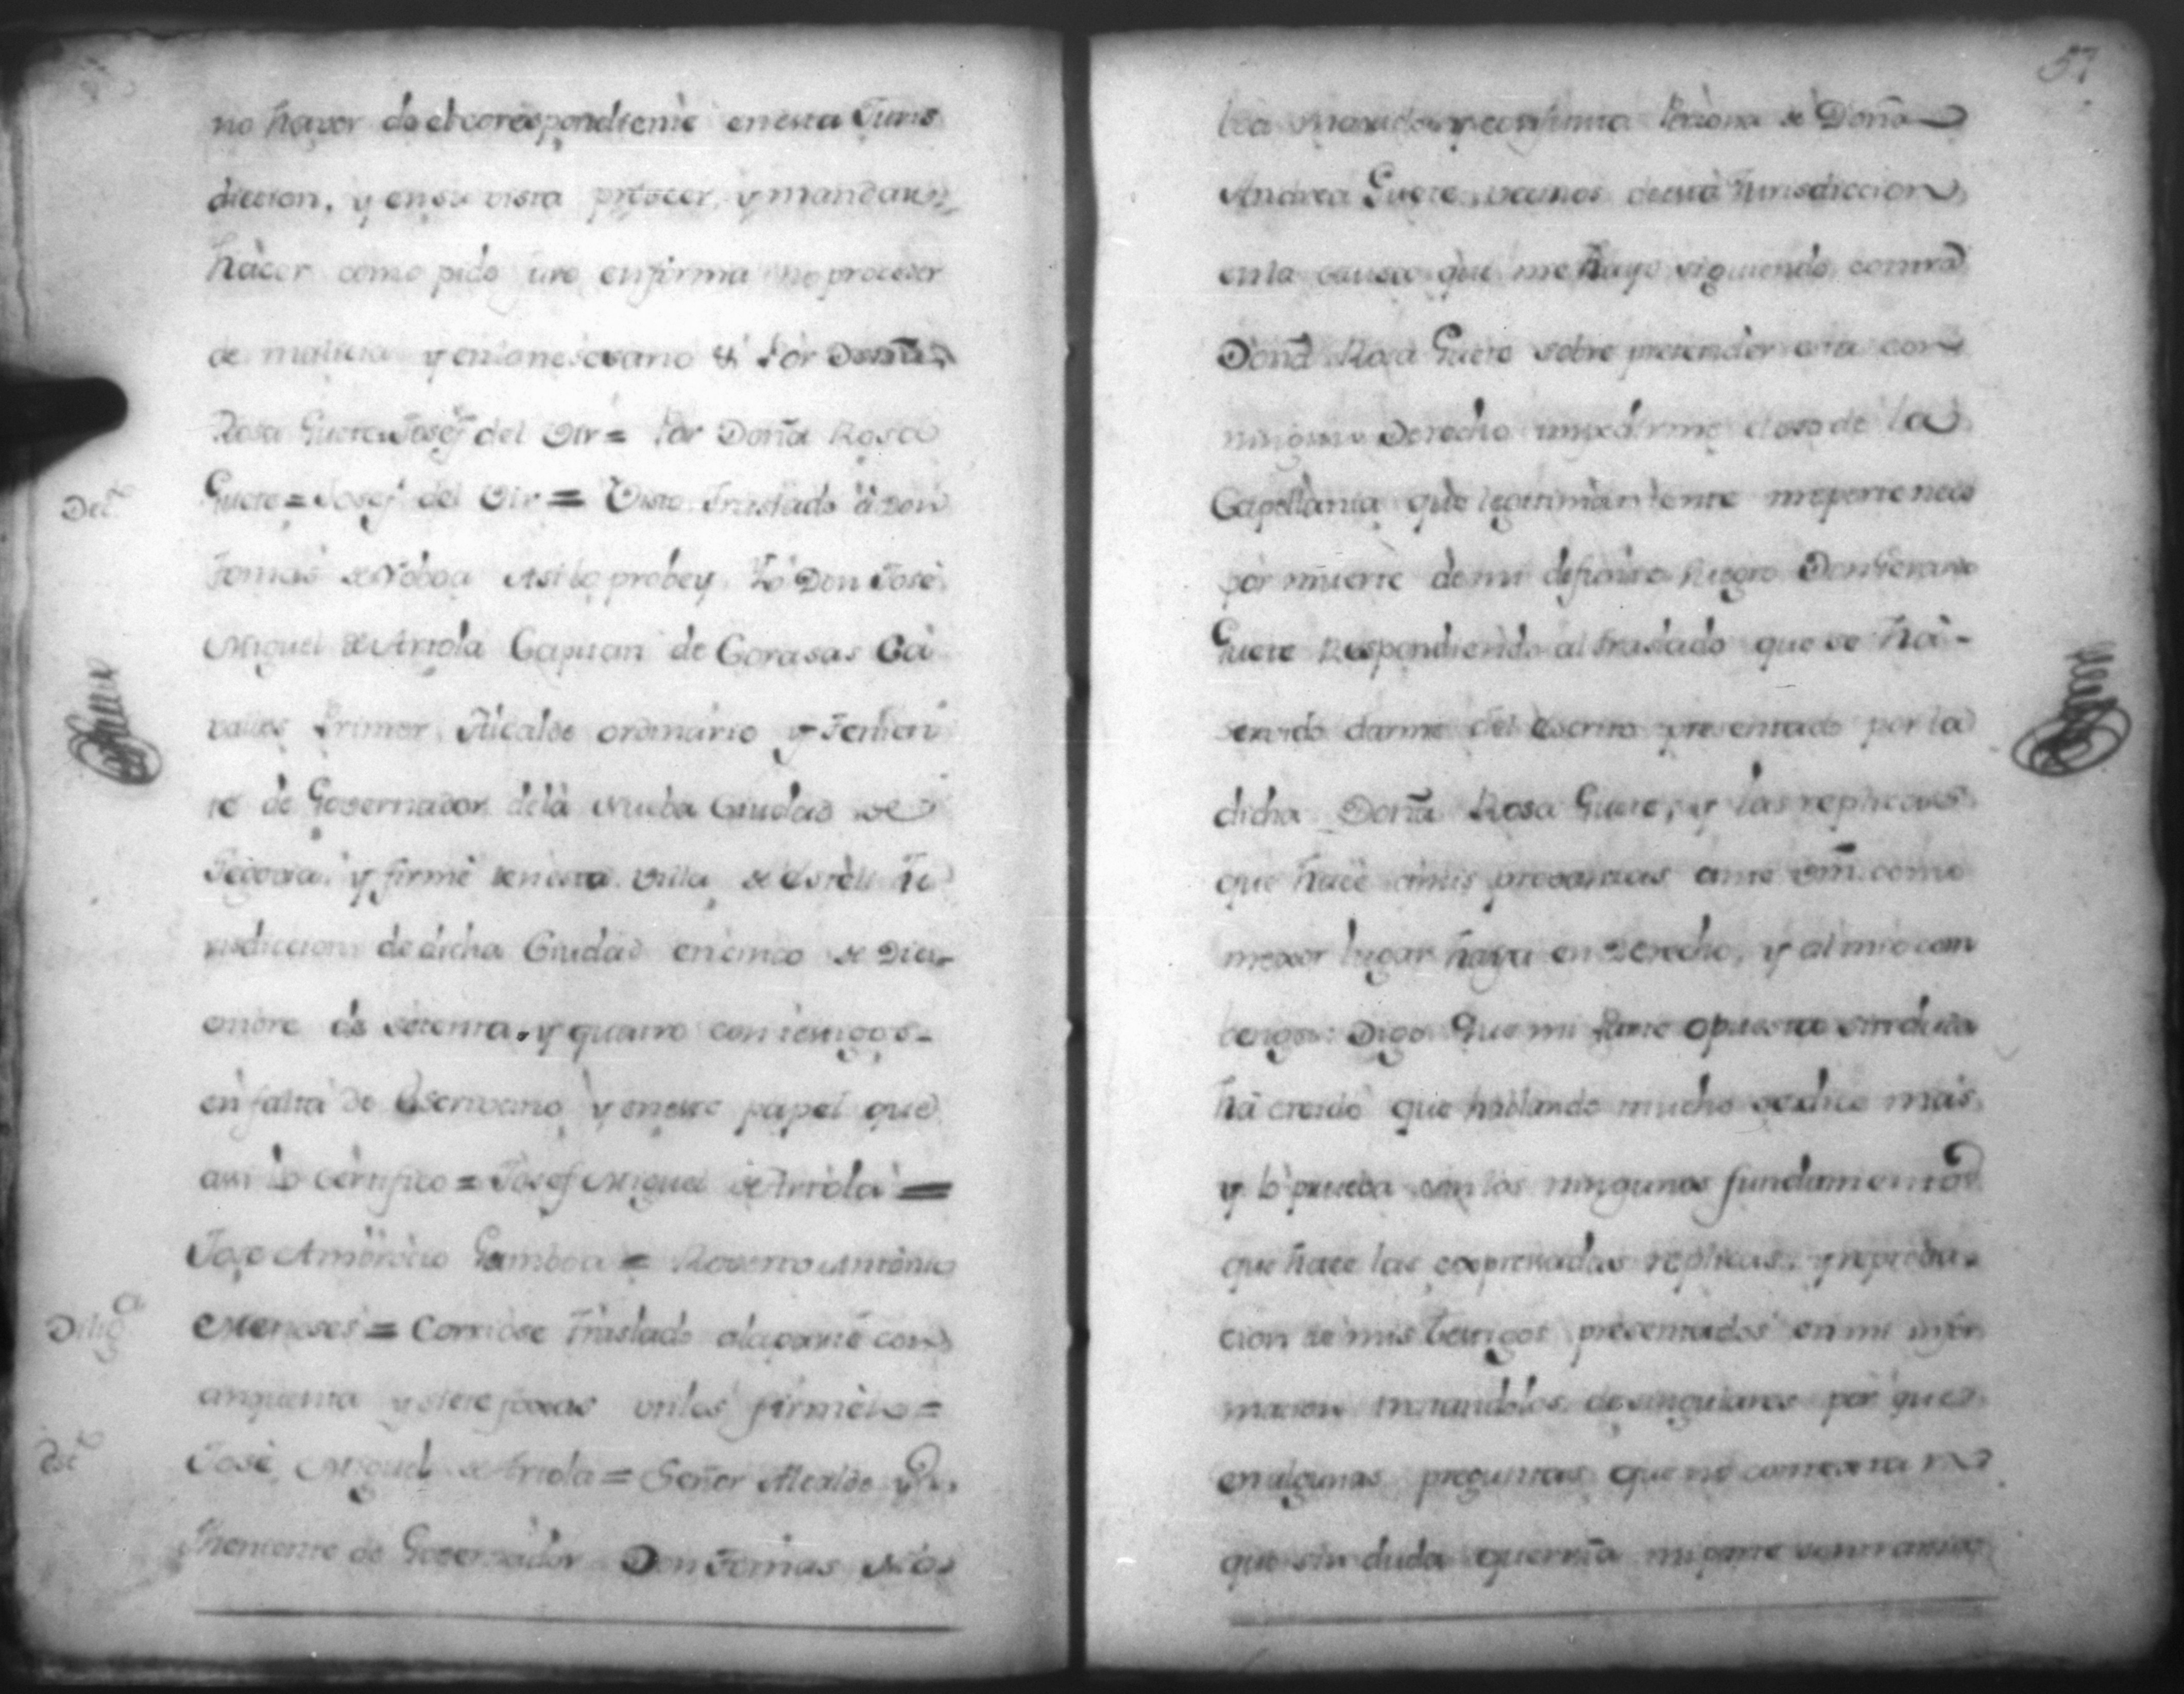 no haver de el correspondiente en esta Juris
diccion, y en su vista proveer, y mandar
hàcer como pido juro en forma no proceder
de malicia y en lo nesesario &. Por Doña
Rosa Huete Josef del Oir = Por Doña Rosa
Decto
Huete = Josef del Oir = Visto Traslado à Don
Tomas de Noboa Asi lo probey. Yò Don José
Miguel de Arriola Capitan de Corasas Ca
vallos Primer Alcalde ordinario y Tenien
te de Governador dela Nueba Ciudad de
Segovia, y firmè en esta Villa de Esteli Ju
risdiccion de dicha Ciudad en cinco de Dici-
embre de setenta, y quatro con testigos
en falta de Escrivano y en este papel que
asi lo certifico = Josef Miguel de Arriola =
José Ambrocio Gamboa = Roverto Antonio
Diliga
Meneses = Corriose Traslado ala parte con
cinquenta y siete foxas utiles firmelo =
Esto
José Miguel de Arriola = Señor Alcalde y
Theniente de Governador Don Tomas No
57
boa Marido y conjunta Persona de Doña
Andrea Huete vecinos de esta Jurisdiccion
en la causa que me hayo siguiendo contra
Doña Rosa Huete sobre pretender esta con
ningun Derecho impedirme el uso de la
Capellània que legitimamente me pertenece
por muerte de mi difunto Suegro Don
Huete Respondiendo al traslado que se hà
servido darme del Escrito presentado por la
dicha Doña Rosa Huete, y las replicas
que hace amis provanzas ante Vm. como
mexor lugar haya en Derecho, y al mio com
benga: Digo Que mi Parte opuesta sin duda
hà creido que hablando mucho se dice mas
y lo prueba con los ningunos fundamentos
que hace las expresadas replicas, y reproba-
cion de mis testigos presentados en mi infor
macion de singulares por que
en algunas preguntas que no contestaron
que sin duda querria mi parte